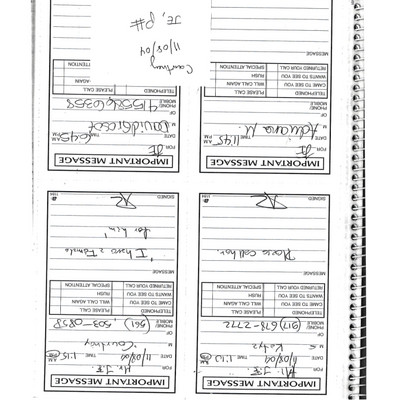 IMPORTANT MESSAGE
FOR Mr. J.E.
DATE 11/08/04 TIME 1:13 P.M.
M s Katya
OF
PHONE/MOBILE (917) 678-2772
TELEPHONED PLEASE CALL
CAME TO SEE YOU WILL CALL AGAIN
WANTS TO SEE YOU RUSH
RETURNED YOUR CALL SPECIAL ATTENTION
MESSAGE
Please call her.
SIGNED
IMPORTANT MESSAGE
FOR Mr. J.E.
DATE 11/08/04 TIME 1:15 P.M.
M Courtney
OF
PHONE/MOBILE (561) 503-0258
TELEPHONED PLEASE CALL
CAME TO SEE YOU WILL CALL AGAIN
WANTS TO SEE YOU RUSH
RETURNED YOUR CALL SPECIAL ATTENTION
MESSAGE
"I have a Female
for him"
SIGNED
IMPORTANT MESSAGE
FOR JE
DATE TIME 11:45
M Adriana M.
OF
PHONE/MOBILE
TELEPHONED PLEASE CALL
CAME TO SEE YOU WILL CALL AGAIN
WANTS TO SEE YOU RUSH
RETURNED YOUR CALL SPECIAL ATTENTION
MESSAGE
IMPORTANT MESSAGE
FOR JE
DATE TIME 6:45
M
OF
PHONE/MOBILE
TELEPHONED
AGAIN
ATTENTION
11/08/04
Courtney
JE, P#